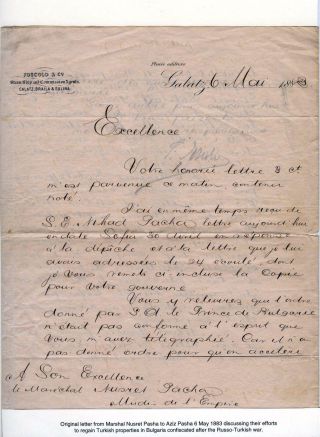 Please address
FOSCOLO & CY
Steam Ship and Commission Agents.
GALATZ, BRAILA & SULINA.
Galatz 6 Mai
Excellence
Votre honorée lettre 3 ct
m'est parvenue ce matin, contenu
noté.
J'ai en même temps reçu de
S.E. Nihad Pacha lettre aujourd'hui
en date Sofia 30 Avril en réponse
à la dépêche et à la lettre que je lui
avais adressées le 24 écoulé, dont
je vous remets ci-incluse la Copie
pour votre gouverne
Vous y relèverez que l'ordre
donné par S.A. le Prince de Bulgarie
n'était pas conforme à l'esprit que
Vous m'avez télégraphié. Car il n'a
pas donné ordre pour qu'on accélère
A Son Excellence
le Maréchal Nusret Pacha
de l'Empire
Original letter from Marshal Nusret Pasha to Aziz Pasha 6 May 1883 discussing their efforts
to regain Turkish properties in Bulgaria confiscated after the Russo-Turkish war.